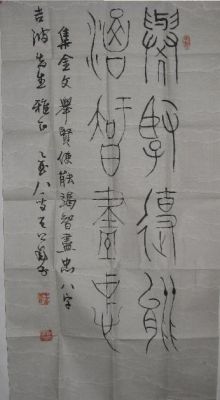 舉賢使能
渴智盡忠
集金文舉賢使能渴智盡忠八字
吉波先生雅正